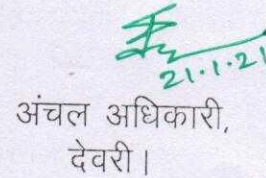 21.1.21
अंचल अधिकारी,
देवरी।